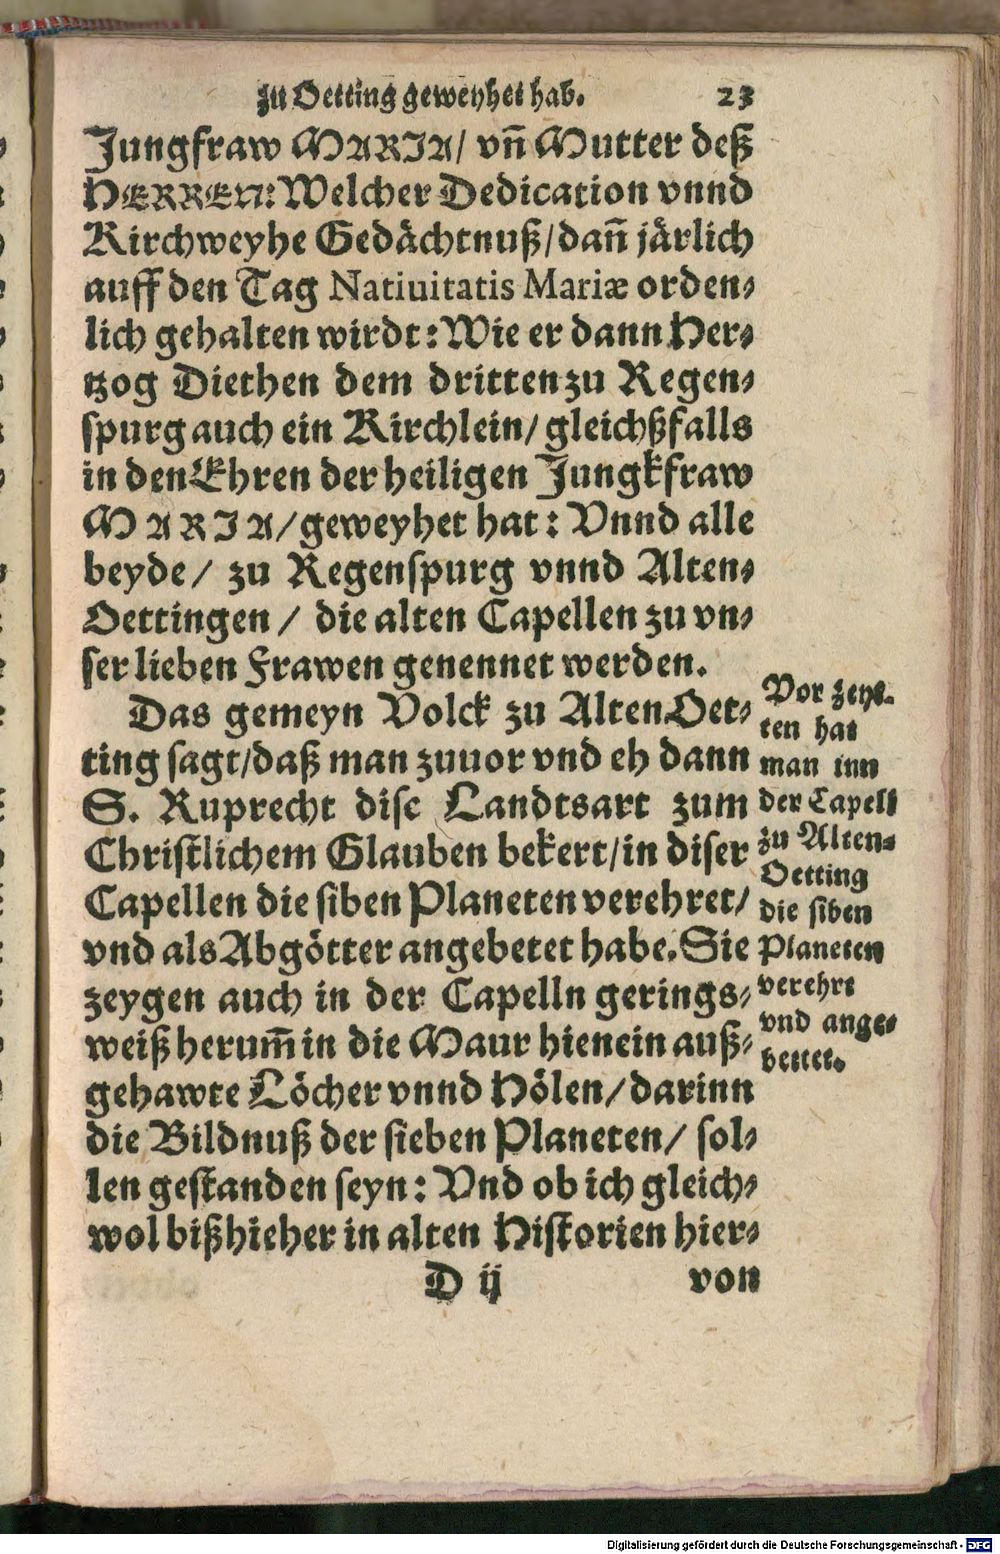 zu Oetting geweyhet hab. 23
Jungfraw MARIA/ vn̄ Mutter deß
HERREN: Welcher Dedication vnnd
Kirchweyhe Gedächtnuß/dan̄ järlich
auff den Tag Natiuitatis Mariæ orden⸗
lich gehalten wirdt: Wie er dann Her⸗
tzog Diethen dem dritten zu Regen⸗
spurg auch ein Kirchlein/ gleichßfalls
in den Ehren der heiligen Jungkfraw
MARIA/ geweyhet hat: Vnnd alle
beyde/ zu Regenspurg vnnd Alten⸗
Oettingen/ die alten Capellen zu vn⸗
ser lieben Frawen genennet werden.
Das gemeyn Volck zu AltenOet⸗
ting sagt/daß man zuuor vnd eh dann
S. Ruprecht dise Landtsart zum
Christlichem Glauben bekert/in diser
Capellen die siben Planeten verehret/
vnd als Abgötter angebetet habe. Sie
zeygen auch in der Capelln gerings⸗
weiß herum̄ in die Maur hienein auß⸗
gehawte Löcher vnnd Hölen/darinn
die Bildnuß der sieben Planeten/ sol⸗
len gestanden seyn: Vnd ob ich gleich⸗
wol bißhieher in alten Historien hier⸗
D ij von
Vor zeyt⸗
ten hat
man inn
der Capell
zu Alten⸗
Oetting
die siben
Planeten
verehrt
vnd ange⸗
bettet.
Digitalisierung gefördert durch die Deutsche Forschungsgemeinschaft - DFG